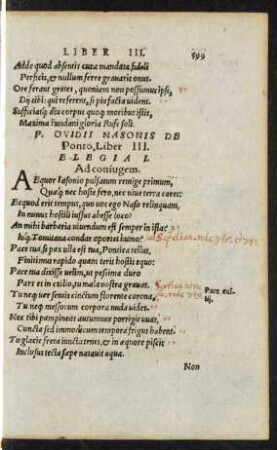 LIBER III. 699
Adde quod absentis cura mandata fideli
Perficis, & nullum ferre gravaris onus.
Ore ferant grates, quoniam non possumus ipsi,
Dij tibi: qui referent, si pia facta vident.
Sufficiatq; diu corpus quoq; moribus istis,
Maxima Fundani gloria Rufe soli.
P. OVIDII NASONIS DE
Ponto, Liber III.
ELEGIA I.
Ad coniugem.
AEquor Iasonio pulsatum remige primum,
Quaq; nec hoste fero, nec niue terra cares:
Ecquod erit tempus, quo vos ego Naso relinquam,
In minus hostili iussus abesse loco?
An mihi barbaria vivendum est semper in ista?
Inq; Tomitana condar oportet humo?
Pace tua, si pax ulla est tua, Pontica tellus,
Finitimus rapido quam terit hostis equo:
Pace tua dixisse velim, ut pessima duro
Pars es in exilio, tu mala nostra gravas.
Pars exi-
lij.
Tu neq; ver sentis cinctum florente corona,
Tu neq; messorum corpora nuda vides.
Nec tibi pampineas autumnus porrigit uvas,
Cuncta sed immodicum tempora frigus habent.
Tu glacie freta iuncta tenes, & in aequore piscis
Inclusus tecta saepe natavit aqua.
Non